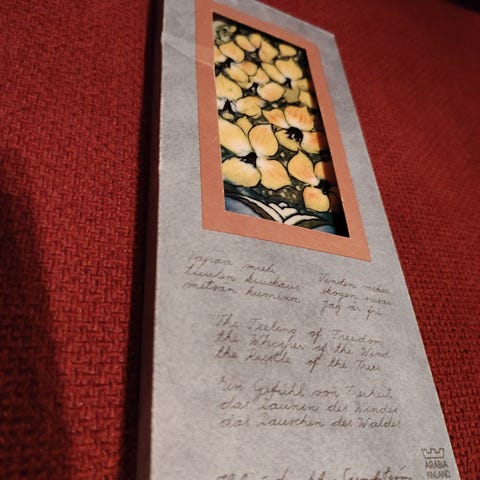 Vapaa mieli
tuulen kuiskaus
metsän humina
Vinden viskar
skogen susar
Jag är fri
The Feeling of Freedom
the Whisper of the Wind
the Rustle of the Trees
Ein Gefühl von Freiheit
das Raunen des Windes
das Rauschen des Waldes
ARABIA
FINLAND